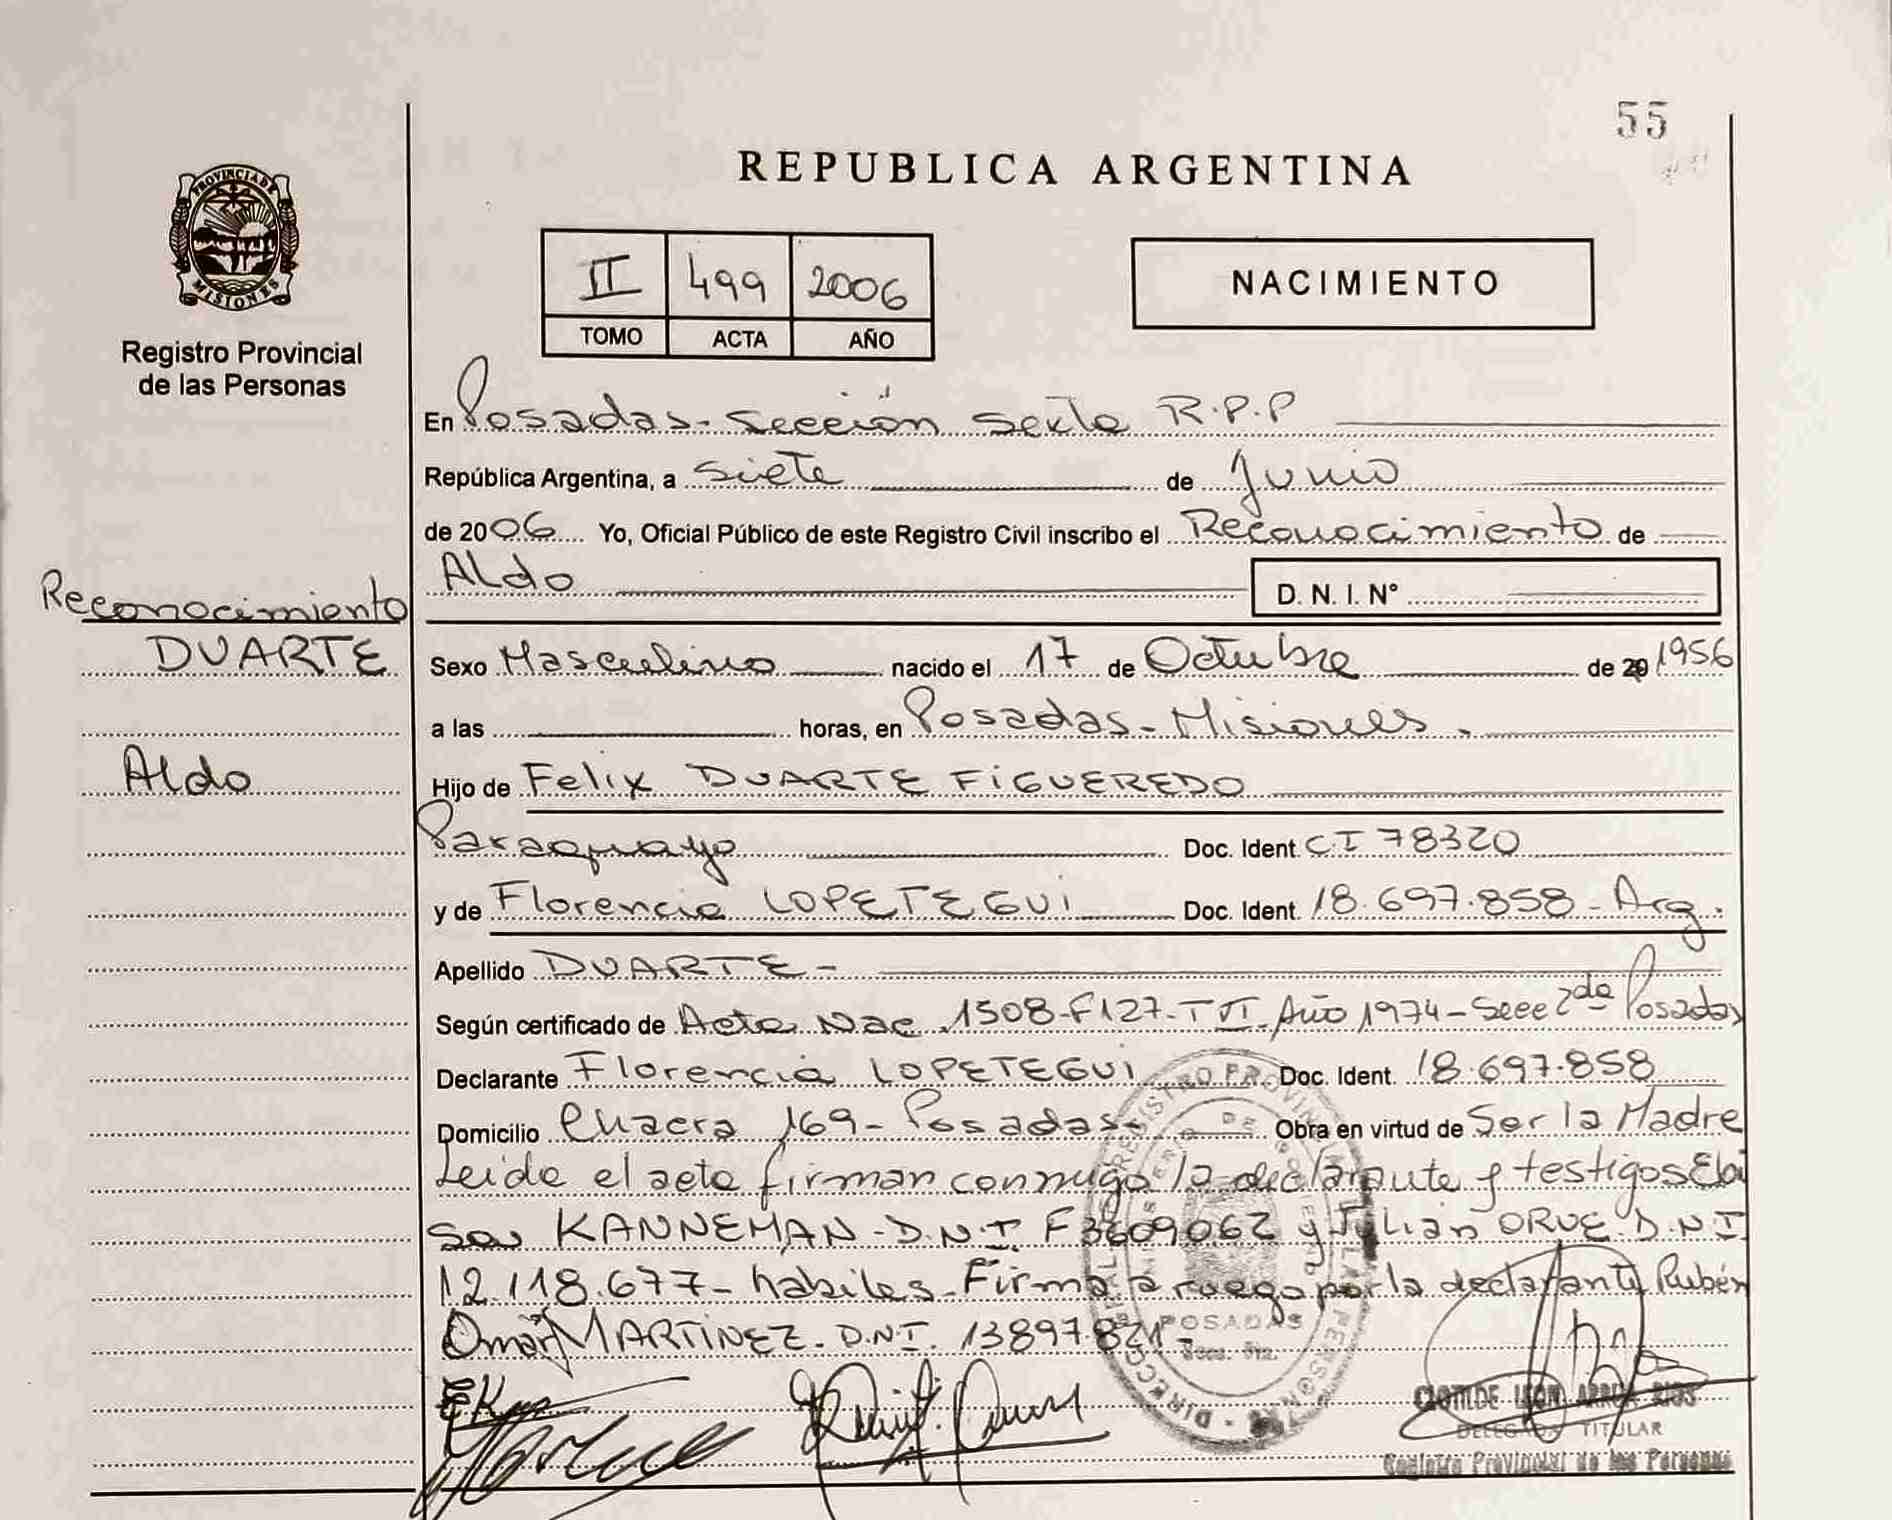 55
REPUBLICA ARGENTINA
PROVINCIA DE
MISIONES
Registro Provincial
de las Personas
II 499 2006
TOMO ACTA AÑO
NACIMIENTO
En Posadas - Sección Sexta R.P.P
República Argentina, a siete de Junio
de 2006 Yo, Oficial Público de este Registro Civil inscribo el Reconocimiento de
Aldo D. N. I. N°
Reconocimiento
DUARTE
Aldo
Sexo Masculino nacido el 17 de Octubre de 20 1956
a las horas, en Posadas - Misiones.
Hijo de Felix DUARTE FIGUEREDO
Paraguayo Doc. Ident. CI 78320
y de Florencia LOPETEGUI Doc. Ident 18.697.858 - Arg.
Apellido DUARTE -
Según certificado de Acta Nac 1508-F127-T VI Año 1974 - Secc 2da Posadas
Declarante Florencia LOPETEGUI Doc. Ident. 18.697.858
Domicilio Chacra 169 - Posadas - Obra en virtud de Ser la Madre
Leida el acta firman conmigo la declarante y testigos
KANNEMAN - D.N.I. F3609062 y Julian ORUE D.N.I
12.118.677 - habiles - Firma a ruego por la declarante Rubén
Omar MARTINEZ. D.N.I. 13897821 -
POSADAS
CLOTILDE LEON
DELEGADA TITULAR
Registro Provincial de las Personas